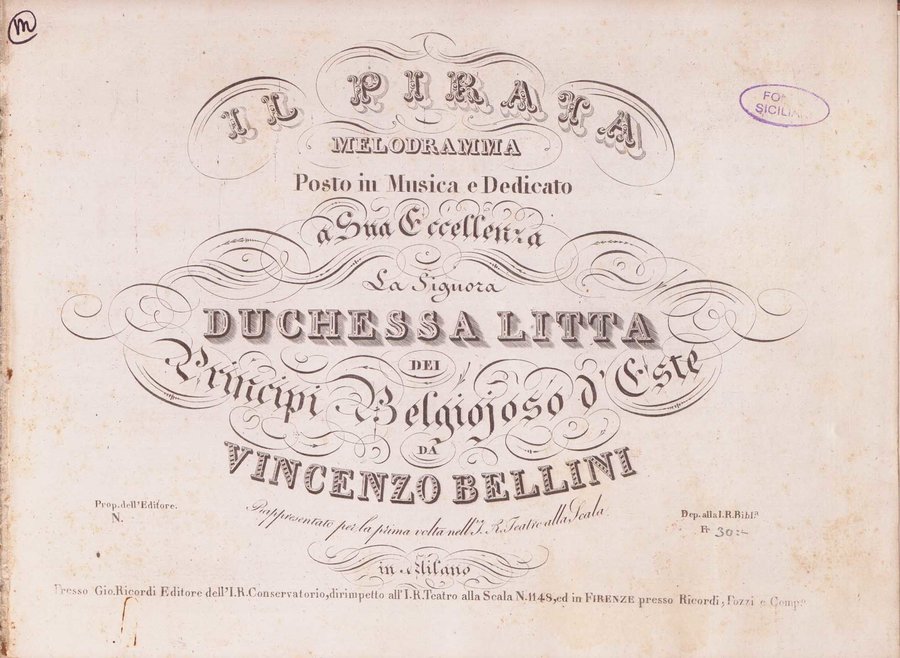 m
IL PIRATA
FO
SICILIA
MELODRAMMA
Posto in Musica e Dedicato
a Sua Eccellenza
La Signora
DUCHESSA LITTA
DEI
Principi Belgiojoso d'Este
DA
VINCENZO BELLINI
Rappresentato per la prima volta nell'I. R. Teatro alla Scala
in Milano
Prop. dell'Editore.
N.
Dep. alla I.R. Bibl.ª
Fr 30:-
Presso Gio. Ricordi Editore dell'I.R. Conservatorio, dirimpetto all'I.R. Teatro alla Scala N. 1148, ed in FIRENZE presso Ricordi, Pozzi e Comp.º